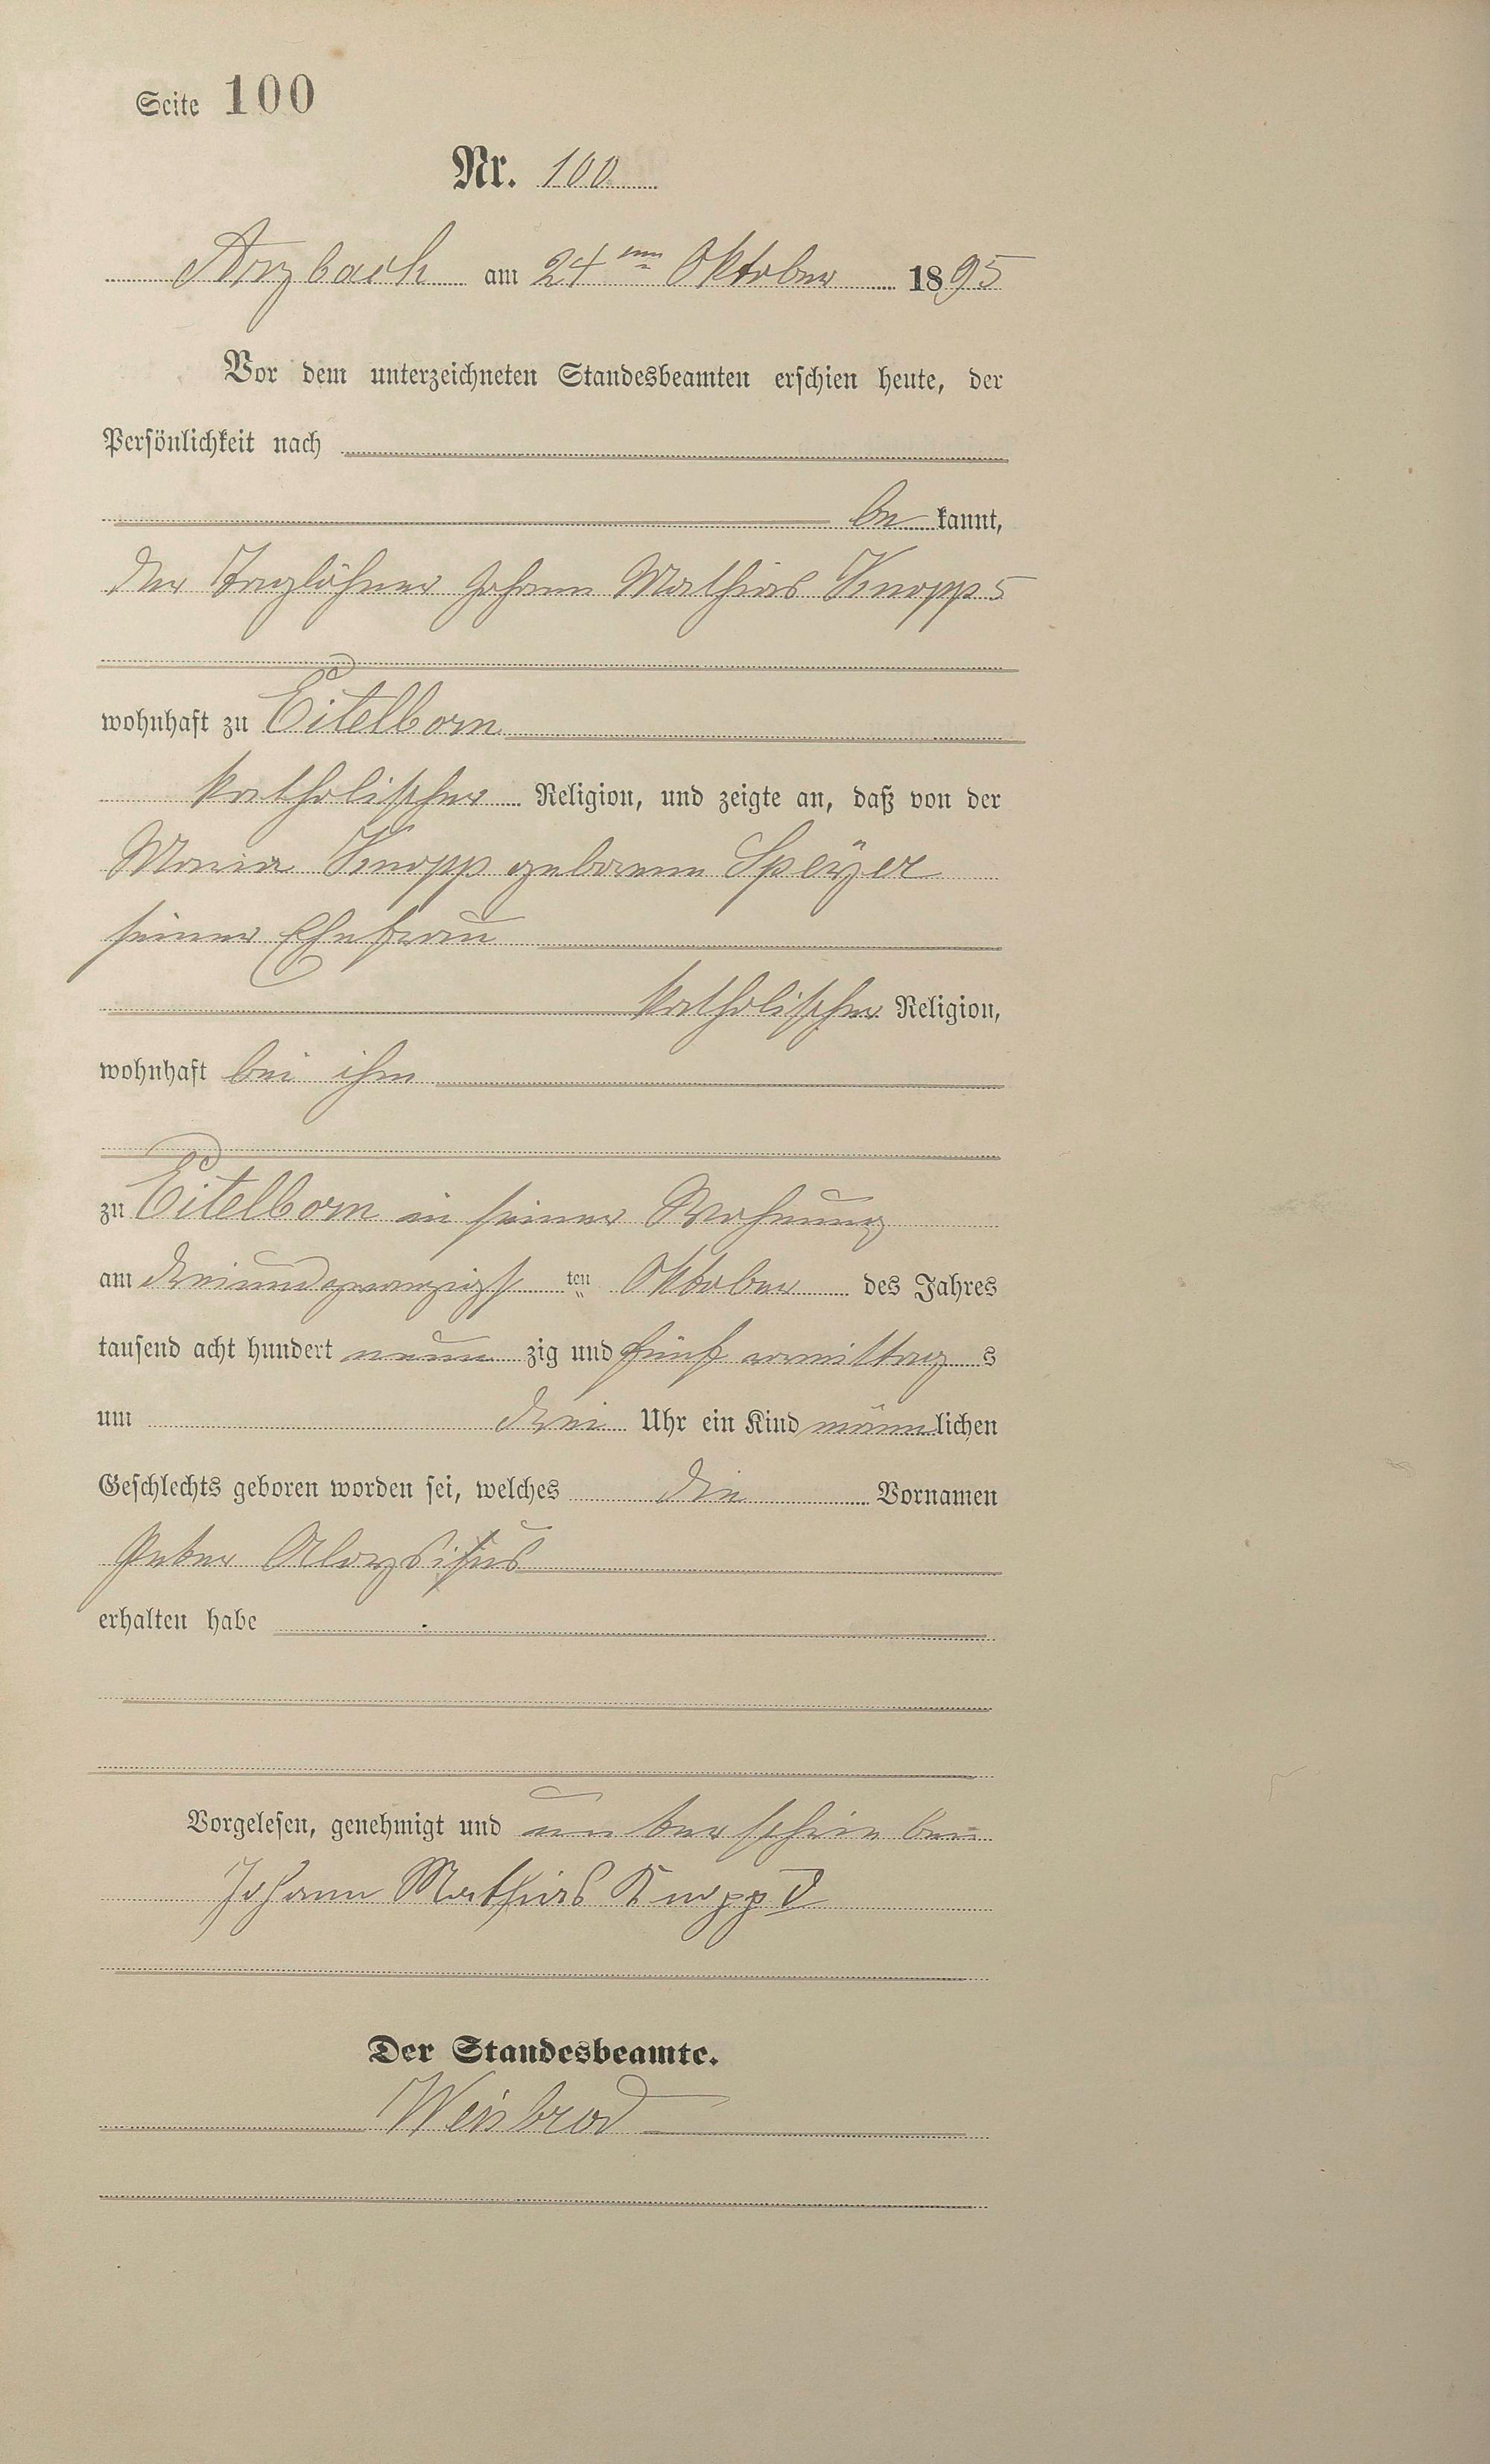 Seite 100
Nr. 100
Arzbach am 24ten Oktober 1895
Vor dem unterzeichneten Standesbeamten erschien heute, der
Persönlichkeit nach
be kannt,
der Taglöhner Johann Mathias Knopp 5
wohnhaft zu Eitelborn
katholischer Religion, und zeigte an, daß von der
Maria Knopp geborenen Speyer
seiner Ehefrau
katholischer Religion,
wohnhaft bei ihm
zu Eitelborn in seiner Wohnung
am dreiundzwanzigsten Oktober des Jahres
tausend acht hundert neun zig und fünf vormittag s
um drei Uhr ein Kind männlichen
Geschlechts geboren worden sei, welches die Vornamen
Peter Aloysius
erhalten habe
Vorgelesen, genehmigt und unterschrieben
Johann Mathias Knopp V
Der Standesbeamte.
Weisbrod